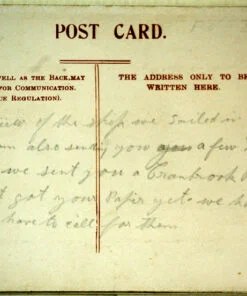 POST CARD.
WELL AS THE BACK, MAY
FOR COMMUNICATION.
UE REGULATION).
THE ADDRESS ONLY TO BE
WRITTEN HERE.
view of the ship we sailed in
am also sending you a few
we sent you a Cranbrook
t got your Papers yet we h
have to call for them